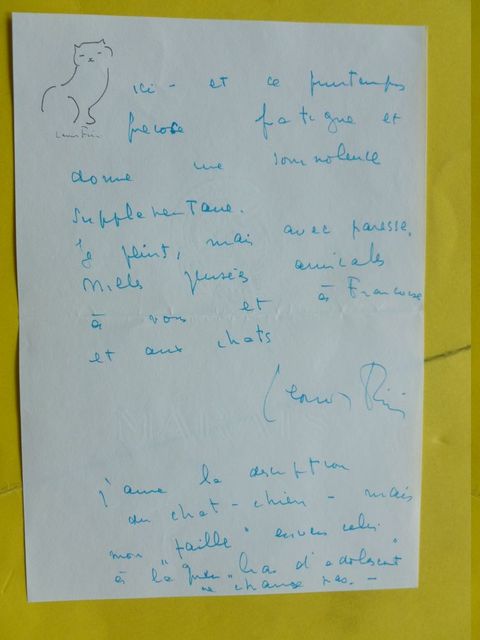 ici - et ce printemps
précoce fatigue et
donne une somnolence
supplementaire.
je peint, mais avec paresse.
Milles pensées amicales
à vous et à Francoise
et aux chats
Leonor Fini
j'aime la description
du chat-chien - mais
mon "faille" envers celui
à la " bas d'adolescent"
ne change pas. -